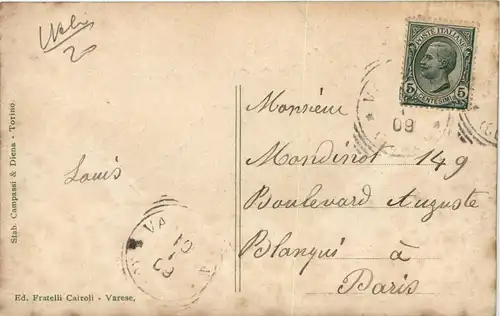 POSTE ITALIANE
5 5
CENTESIMI
09
Monsieur
Mondinot 149
Boulevard Auguste
Blanqui à
Paris
Louis
VA
10
09
Stab. Campassi & Diena - Torino.
Ed. Fratelli Cairoli - Varese,